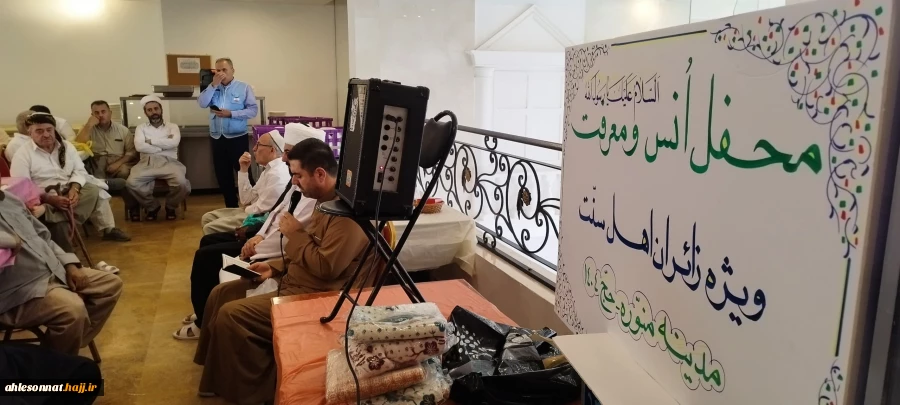 السَّلامُ عَلَیکَ یا رَسُولَ الله
محفل اُنس و معرفت
ویژه زائران اهل سنّت
مدینه منوره - حج ۱۴۰۴
ahlesonnat.hajj.ir